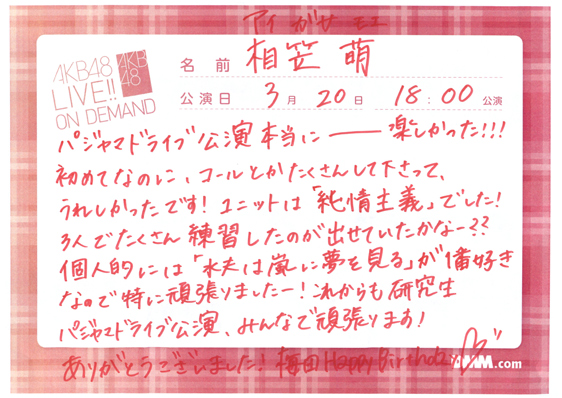 アイ がさ もえ
AKB48
LIVE!!
ON DEMAND
AKB
48
名 前 相笠 萌
公演日 3月 20日 18:00公演
パジャマドライブ公演 本当にーー楽しかった!!!
初めてなのに、コールとかたくさんして下さって、
うれしかったです! ユニットは「純情主義」でした!
3人でたくさん練習したのが出せていたかなー??
個人的には「水夫は嵐に夢を見る」が1番好き
なので特に頑張りましたー! これからも研究生
パジャマドライブ公演、みんなで頑張ります!
ありがとうございました! 梅田Happy Birthday
.com